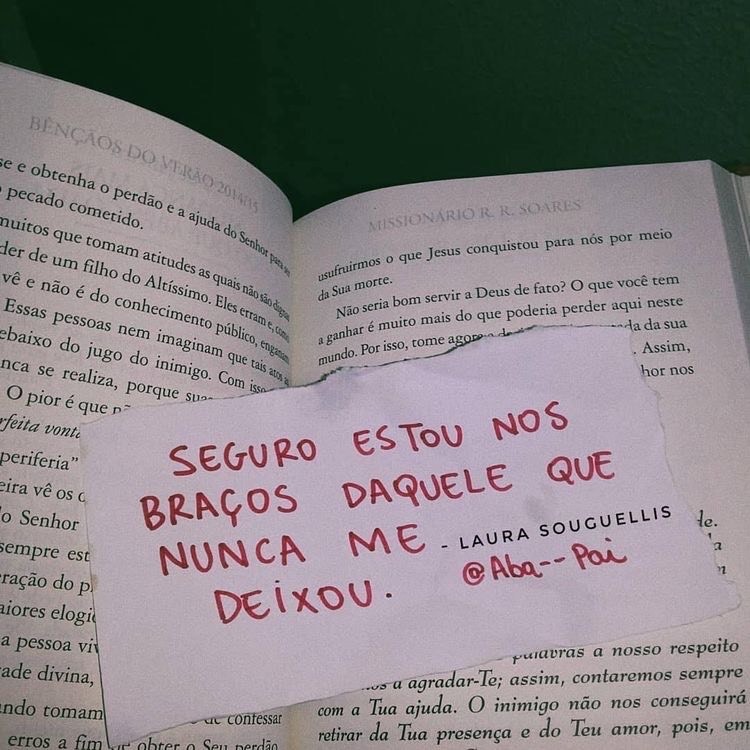 BÊNÇÃOS DO VERÃO 2014/15
se e obtenha o perdão e a ajuda do Senhor para
pecado cometido.
muitos que tomam atitudes as quais não são dignas
der de um filho do Altíssimo. Eles erram e, como
vê e não é do conhecimento público, enganam
Essas pessoas nem imaginam que tais atos
ebaixo do jugo do inimigo. Com isso
nca se realiza, porque sua
O pior é que
rfeita vonta
periferia"
eira vê os
o Senhor
sempre est
eração do p
aiores elogi
a pessoa viv
ade divina,
ndo tomam
de confessar
erros a fim de obter o Seu perdão
MISSIONÁRIO R. R. SOARES
usufruirmos o que Jesus conquistou para nós por meio
da Sua morte.
Não seria bom servir a Deus de fato? O que você tem
a ganhar é muito mais do que poderia perder aqui neste
mundo. Por isso, tome agora da sua
. Assim,
hor nos
SEGURO ESTOU NOS
BRAÇOS DAQUELE QUE
NUNCA ME
DEIXOU.
- LAURA SOUGUELLIS
@Aba--Pai
de.
a
palavras a nosso respeito
a agradar-Te; assim, contaremos sempre
com a Tua ajuda. O inimigo não nos conseguirá
retirar da Tua presença e do Teu amor, pois, em